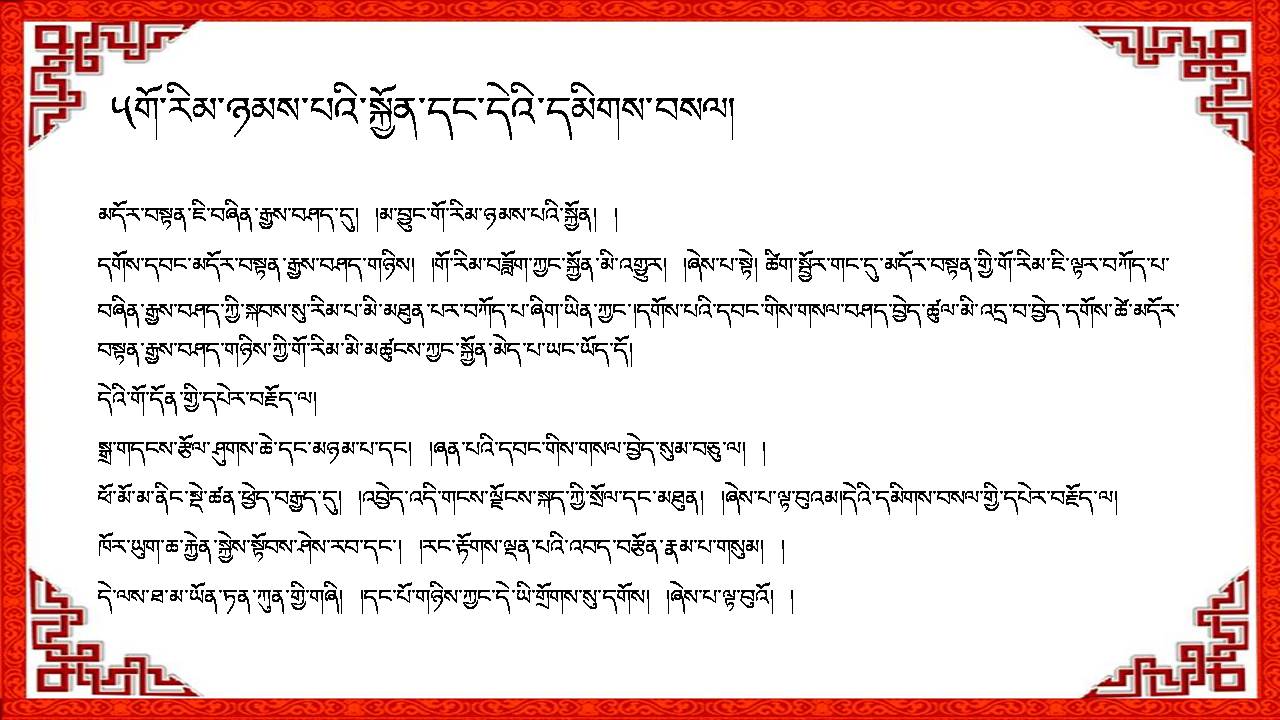 ༥གོ་རིམ་ཉམས་པའི་སྐྱོན་དང་དེའི་དམིགས་བསལ།
མདོར་བསྟན་ཇི་བཞིན་རྒྱས་བཤད་དུ། །མ་བྱུང་གོ་རིམ་ཉམས་པའི་སྐྱོན། །
དགོས་དབང་མདོར་བསྟན་རྒྱས་བཤད་གཉིས། །གོ་རིམ་བཟློག་ཀྱང་སྐྱོན་མི་འགྱུར། །ཞེས་པ་སྟེ། ཚིག་སྦྱོར་གང་དུ་མདོར་བསྟན་གྱི་གོ་རིམ་ཇི་ལྟར་བཀོད་པ་
བཞིན་རྒྱས་བཤད་ཀྱི་སྐབས་སུ་རིམ་པ་མི་མཐུན་པར་བཀོད་པ་ཞིག་ཡིན་ཀྱང་།དགོས་པའི་དབང་གིས་གསལ་བཤད་བྱེད་ཚུལ་མི་འདྲ་བ་བྱེད་དགོས་ཚེ་མདོར་
བསྟན་རྒྱས་བཤད་གཉིས་ཀྱི་གོ་རིམ་མི་མཚུངས་ཀྱང་སྐྱོན་མེད་པ་ཡང་ཡོད་དོ།
དེའི་གོ་དོན་གྱི་དཔེར་བརྗོད་ལ།
སྒྲ་གདངས་རྩོལ་ཤུགས་ཆེ་དང་མཉམ་པ་དང། །ཞན་པའི་དབང་གིས་གསལ་བྱེད་སུམ་བཅུ་ལ། །
ཕོ་མོ་མ་ནིང་སྡེ་ཚན་ཕྱེད་བརྒྱད་དུ། །འབྱེད་འདི་གངས་ལྗོངས་སྐད་ཀྱི་སྲོལ་དང་མཐུན། །ཞེས་པ་ལྟ་བུའམ།དེའི་དམིགས་བསལ་གྱི་དཔེར་བརྗོད་ལ།
ཁོར་ཡུག་ཆ་རྐྱེན་སྐྱེས་སྟོབས་ཤེས་རབ་དང་། །རང་རྟོགས་ལྡན་པའི་འབད་བརྩོན་རྣམ་པ་གསུམ། །
དེ་ལས་ཐ་མ་ཡོན་ཏན་ཀུན་གྱི་གཞི། །དང་པོ་གཉིས་ཀྱང་དེ་ཡི་གྲོགས་སུ་དགོས། །ཞེས་པ་ལྟ་བུའོ། །